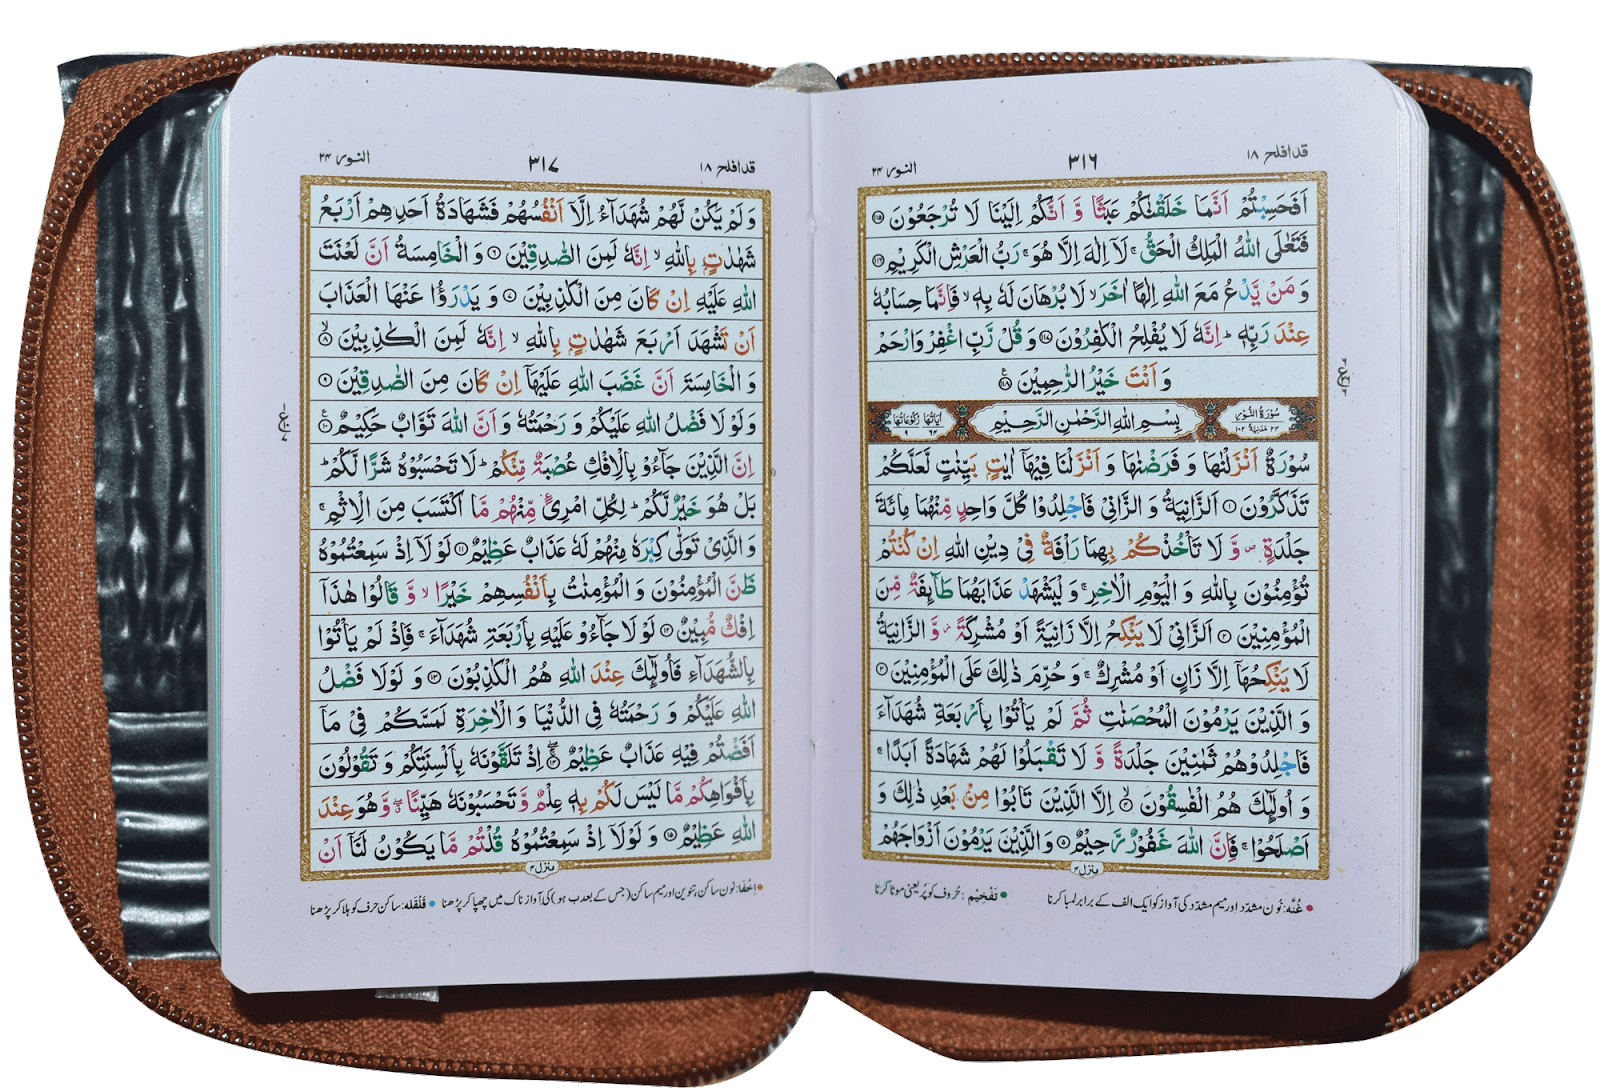 قد افلح ١٨
٣١٦
النور ٢٤
اَفَحَسِبْتُمْ اَنَّمَا خَلَقْنٰكُمْ عَبَثًا وَّ اَنَّكُمْ اِلَیْنَا لَا تُرْجَعُوْنَ ۝۱۱۵
فَتَعٰلَى اللّٰهُ الْمَلِكُ الْحَقُّ ۚ لَاۤ اِلٰهَ اِلَّا هُوَ ۚ رَبُّ الْعَرْشِ الْكَرِیْمِ ۝۱۱۶
وَ مَنْ یَّدْعُ مَعَ اللّٰهِ اِلٰهًا اٰخَرَ ۙ لَا بُرْهَانَ لَهٗ بِهٖ ۙ فَاِنَّمَا حِسَابُهٗ
عِنْدَ رَبِّهٖ ؕ اِنَّهٗ لَا یُفْلِحُ الْكٰفِرُوْنَ ۝۱۱۷ وَ قُلْ رَّبِّ اغْفِرْ وَ ارْحَمْ
وَ اَنْتَ خَیْرُ الرّٰحِمِیْنَ ۝۱۱۸
سُوْرَةُ النُّوْر
٢٤ مَدَنِيَّةٌ ١٠٢
بِسْمِ اللّٰهِ الرَّحْمٰنِ الرَّحِیْمِ
اٰیَاتُهَا رُكُوْعَاتُهَا
٦٤ ٩
سُوْرَةٌ اَنْزَلْنٰهَا وَ فَرَضْنٰهَا وَ اَنْزَلْنَا فِیْهَاۤ اٰیٰتٍۭ بَیِّنٰتٍ لَّعَلَّكُمْ
تَذَكَّرُوْنَ ۝۱ اَلزَّانِیَةُ وَ الزَّانِیْ فَاجْلِدُوْا كُلَّ وَاحِدٍ مِّنْهُمَا مِائَةَ
جَلْدَةٍ ۪ وَّ لَا تَاْخُذْكُمْ بِهِمَا رَاْفَةٌ فِیْ دِیْنِ اللّٰهِ اِنْ كُنْتُمْ
تُؤْمِنُوْنَ بِاللّٰهِ وَ الْیَوْمِ الْاٰخِرِ ۚ وَ لْیَشْهَدْ عَذَابَهُمَا طَآىِٕفَةٌ مِّنَ
الْمُؤْمِنِیْنَ ۝۲ اَلزَّانِیْ لَا یَنْكِحُ اِلَّا زَانِیَةً اَوْ مُشْرِكَةً ؗ وَّ الزَّانِیَةُ
لَا یَنْكِحُهَاۤ اِلَّا زَانٍ اَوْ مُشْرِكٌ ۚ وَ حُرِّمَ ذٰلِكَ عَلَى الْمُؤْمِنِیْنَ ۝۳
وَ الَّذِیْنَ یَرْمُوْنَ الْمُحْصَنٰتِ ثُمَّ لَمْ یَاْتُوْا بِاَرْبَعَةِ شُهَدَآءَ
فَاجْلِدُوْهُمْ ثَمٰنِیْنَ جَلْدَةً وَّ لَا تَقْبَلُوْا لَهُمْ شَهَادَةً اَبَدًا ۚ
وَ اُولٰٓىِٕكَ هُمُ الْفٰسِقُوْنَ ۝۴ اِلَّا الَّذِیْنَ تَابُوْا مِنْۢ بَعْدِ ذٰلِكَ وَ
اَصْلَحُوْا ۚ فَاِنَّ اللّٰهَ غَفُوْرٌ رَّحِیْمٌ ۝۵ وَ الَّذِیْنَ یَرْمُوْنَ اَزْوَاجَهُمْ
منزل ٤
غُنَّه: نُون مشدّد اور میم مشدّد کی آواز کو ایک الف کے برابر لمبا کرنا • تَفْخِیْم: حُروف کو پُر یعنی موٹا کرنا
قد افلح ١٨
٣١٧
النور ٢٤
وَ لَمْ یَكُنْ لَّهُمْ شُهَدَآءُ اِلَّاۤ اَنْفُسُهُمْ فَشَهَادَةُ اَحَدِهِمْ اَرْبَعُ
شَهٰدٰتٍۭ بِاللّٰهِ ۙ اِنَّهٗ لَمِنَ الصّٰدِقِیْنَ ۝۶ وَ الْخَامِسَةُ اَنَّ لَعْنَتَ
اللّٰهِ عَلَیْهِ اِنْ كَانَ مِنَ الْكٰذِبِیْنَ ۝۷ وَ یَدْرَؤُا عَنْهَا الْعَذَابَ
اَنْ تَشْهَدَ اَرْبَعَ شَهٰدٰتٍۭ بِاللّٰهِ ۙ اِنَّهٗ لَمِنَ الْكٰذِبِیْنَ ۝۸ۙ
وَ الْخَامِسَةَ اَنَّ غَضَبَ اللّٰهِ عَلَیْهَاۤ اِنْ كَانَ مِنَ الصّٰدِقِیْنَ ۝۹
وَ لَوْ لَا فَضْلُ اللّٰهِ عَلَیْكُمْ وَ رَحْمَتُهٗ وَ اَنَّ اللّٰهَ تَوَّابٌ حَكِیْمٌ ۝۱۰
اِنَّ الَّذِیْنَ جَآءُوْ بِالْاِفْكِ عُصْبَةٌ مِّنْكُمْ ؕ لَا تَحْسَبُوْهُ شَرًّا لَّكُمْ ؕ
بَلْ هُوَ خَیْرٌ لَّكُمْ ؕ لِكُلِّ امْرِئٍ مِّنْهُمْ مَّا اكْتَسَبَ مِنَ الْاِثْمِ ۚ
وَ الَّذِیْ تَوَلّٰى كِبْرَهٗ مِنْهُمْ لَهٗ عَذَابٌ عَظِیْمٌ ۝۱۱ لَوْ لَاۤ اِذْ سَمِعْتُمُوْهُ
ظَنَّ الْمُؤْمِنُوْنَ وَ الْمُؤْمِنٰتُ بِاَنْفُسِهِمْ خَیْرًا ۙ وَّ قَالُوْا هٰذَاۤ
اِفْكٌ مُّبِیْنٌ ۝۱۲ لَوْ لَا جَآءُوْ عَلَیْهِ بِاَرْبَعَةِ شُهَدَآءَ ۚ فَاِذْ لَمْ یَاْتُوْا
بِالشُّهَدَآءِ فَاُولٰٓىِٕكَ عِنْدَ اللّٰهِ هُمُ الْكٰذِبُوْنَ ۝۱۳ وَ لَوْ لَا فَضْلُ
اللّٰهِ عَلَیْكُمْ وَ رَحْمَتُهٗ فِی الدُّنْیَا وَ الْاٰخِرَةِ لَمَسَّكُمْ فِیْ مَاۤ
اَفَضْتُمْ فِیْهِ عَذَابٌ عَظِیْمٌ ۝۱۴ۚۖ اِذْ تَلَقَّوْنَهٗ بِاَلْسِنَتِكُمْ وَ تَقُوْلُوْنَ
بِاَفْوَاهِكُمْ مَّا لَیْسَ لَكُمْ بِهٖ عِلْمٌ وَّ تَحْسَبُوْنَهٗ هَیِّنًا ۖۗ وَّ هُوَ عِنْدَ
اللّٰهِ عَظِیْمٌ ۝۱۵ وَ لَوْ لَاۤ اِذْ سَمِعْتُمُوْهُ قُلْتُمْ مَّا یَكُوْنُ لَنَاۤ اَنْ
منزل ٤
• اِخْفَا: نون ساکن، تنوین اور میم ساکن (جس کے بعد ب ہو) کی آواز ناک میں چھپا کر پڑھنا • قَلْقَلَه: ساکن حرف کو ہلا کر پڑھنا